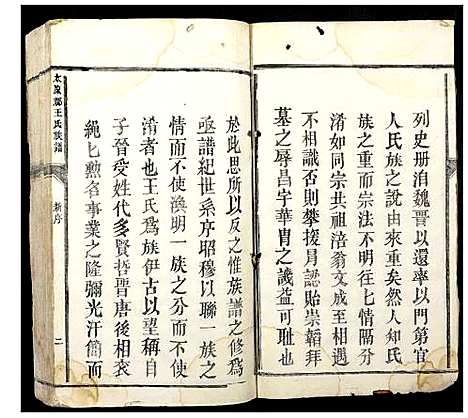 列史册洎魏晉以還率以門第官
人氏族之說由來重矣然人知氏
族之重而宗法不明往往七情隔分
淆如同宗共祖涪翁文成相遇
不相識否則攀援冐認貽崇韜拜
墓之辱昌宇華冑之譏益可恥也
於此思所以反之惟族譜之修爲
亟譜紀世系序昭穆以聯一族之
情而不使渙明一族之分而不使
淆者也王氏爲族伊古以望稱自
子晉受姓代多賢哲晉唐後相衮
繩匕勲名事業之隆彌光汗簡而
太原郡王氏族譜
新序
二